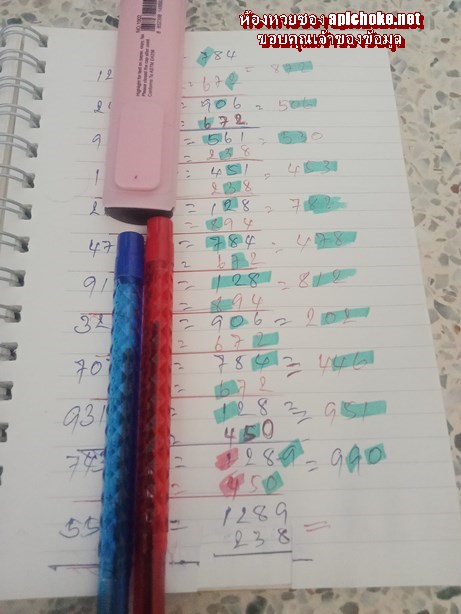 ห้องหวยซอง apichoke.net
ขอบคุณเจ้าของข้อมูล
784
12 = 672 = 872
2 = 906 = 506
672
9 = 561 = 530
= 238
1 = 451 = 453
238
2 = 128 = 782
= 894
47 = 784 = 478
= 672
91 = 128 = 812
= 894
32 = 906 = 202
= 672
70 = 784 = 446
= 672
931 128 = 951
450
74 = 1289 = 990
= 450
55 = 1289 =
238